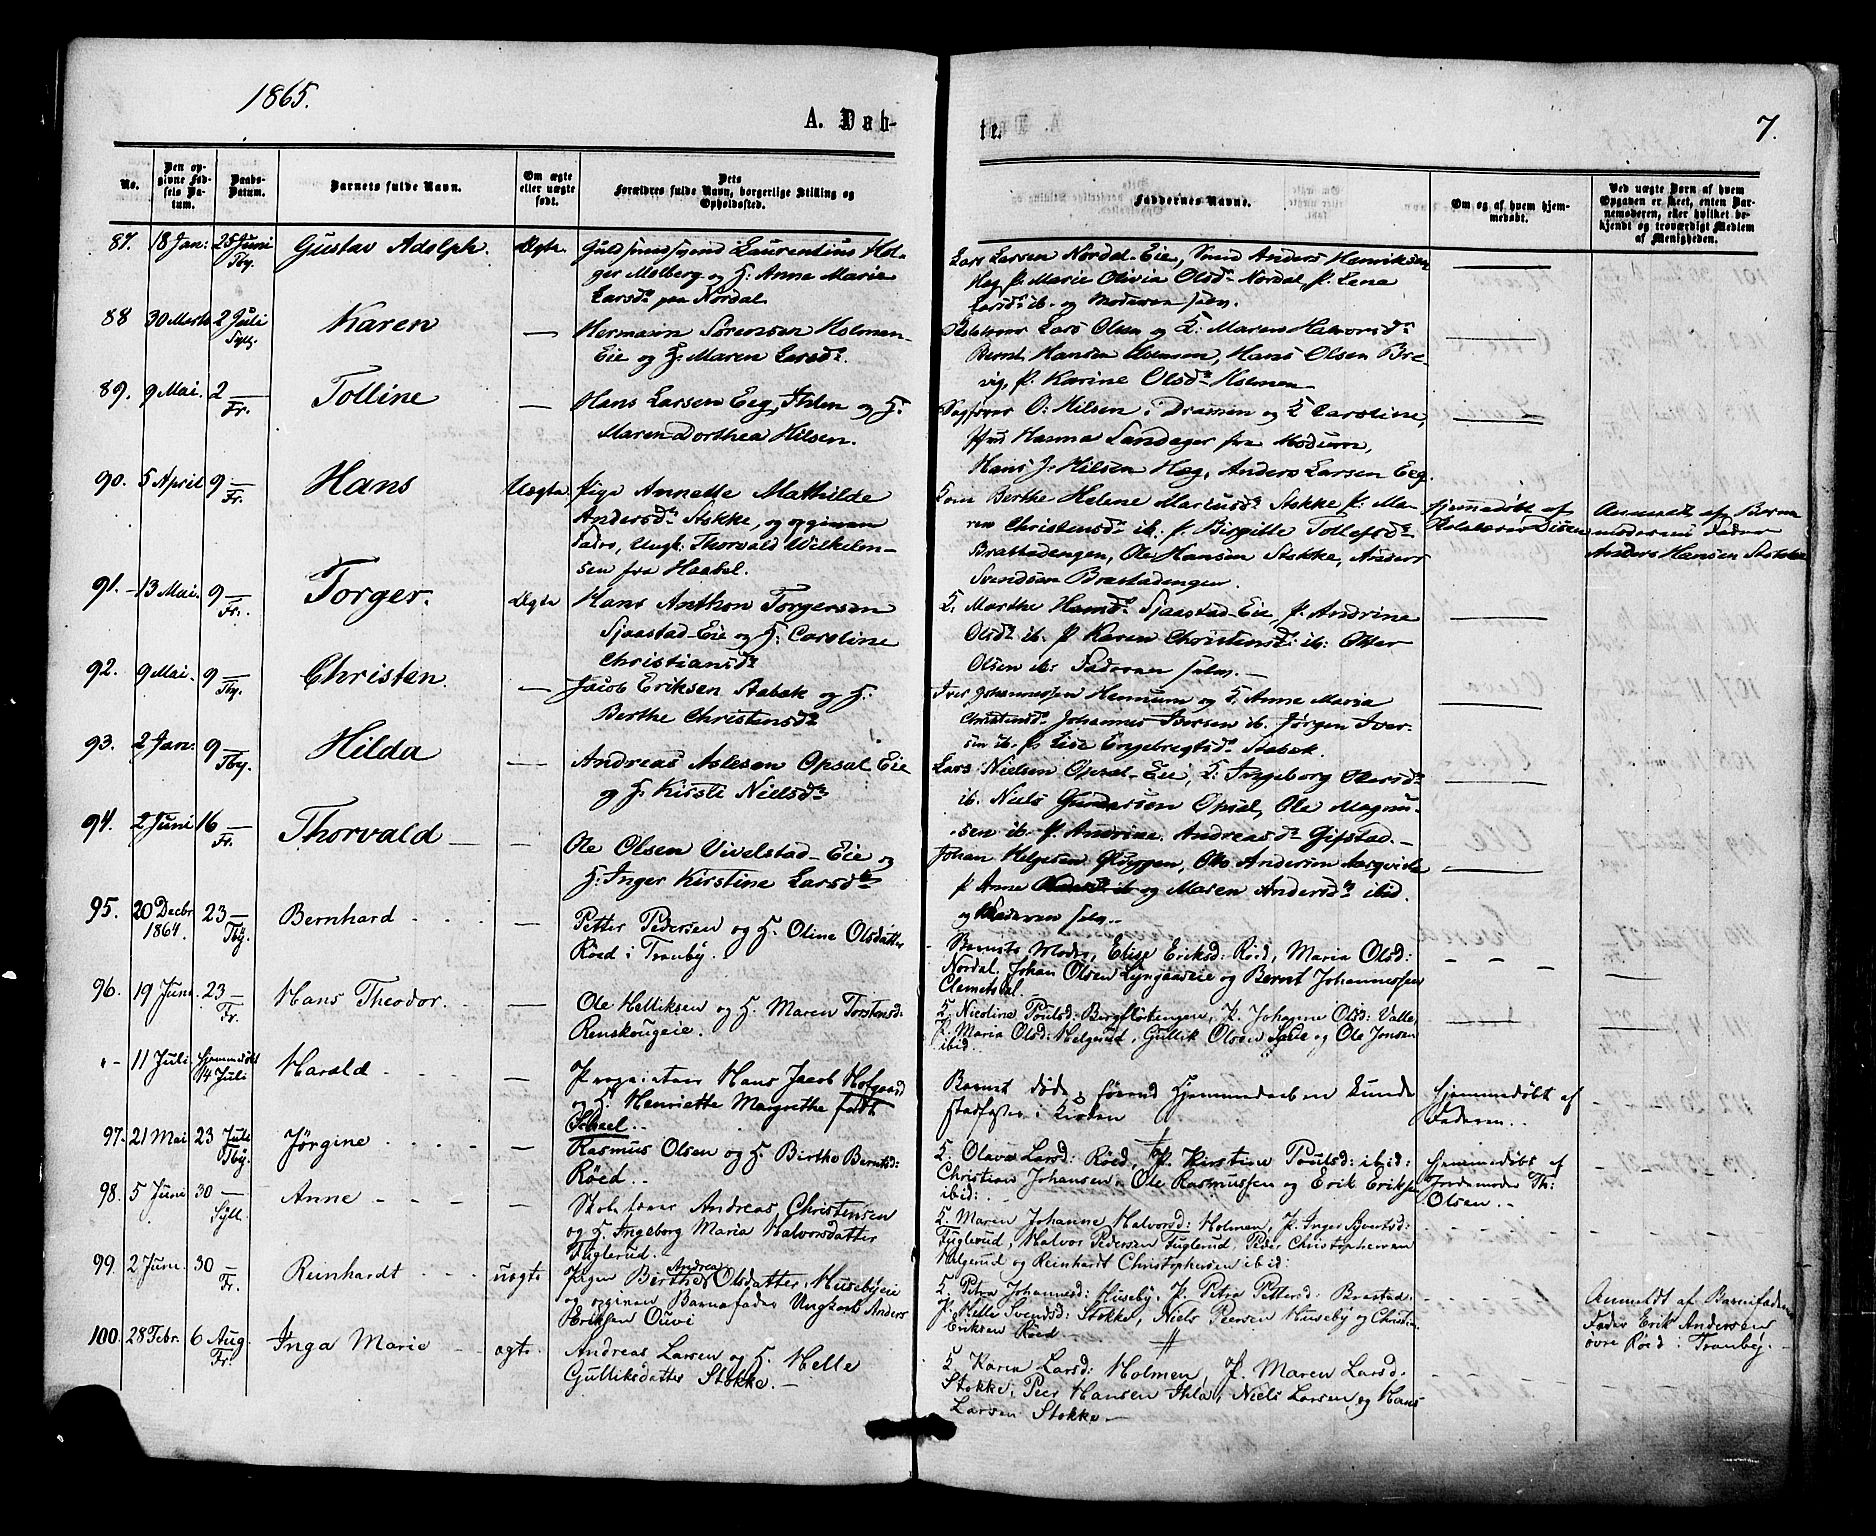 1865.
A. Døb-
te.
7.
No.
Den op-
givne Fød-
sels Da-
tum.
Daabs-
Datum.
Barnets fulde Navn.
Om ægte
eller uægte
født.
Dets
Forældres fulde Navn, borgerlige Stilling og
Opholdssted.
Faddernes Navne.
Om og af hvem hjem-
medøbt.
Ved uægte Børn af hvem
Opgaven er skeet, enten Bar-
nemoderen, eller hvilket be-
kjendt og troværdigt Medlem
af Menigheden.
87. 18 Jan: 25 Juni Gustav Adolph. Ægte Guldsmedsvend Laurentius Hol-
Tby. ger Molberg og H: Anne Marie
Larsdr paa Nordal.
Lars Larsen Nordal-Eie, Svend Anders Henriksen
Hæg, P. Marie Olivia Olsdr Nordal, P. Lena
Larsdr ib. og Moderen selv.
88 30 Marts 2 Juli Karen — Hermann Sørensen Holmen-
Syll. Eie og H: Maren Larsdr.
Skolelærer Lars Olsen og K: Maren Halvorsdr
Bernt Hansen Holmen, Hans Olsen Bre-
vig, P. Karine Olsdr Holmen
89. 9 Mai. 2 — Tolline — Hans Larsen Eeg, Ihlen og H:
Fr. Maren Dorthea Hilsen.
Sagfører O: Hilsen i Drammen og K Caroline,
Hanna Sandager fra Modum,
Hans J. Hilsen Hæg, Anders Larsen Eeg.
90. 5 April 9 — Hans Uægte Pige Annette Mathilde
Fr. Andersdr Stokke, og opgiven
Fader, Ungk: Thorvald Wilhelm-
sen fra Haabel.
Kone Berthe Helene Mariusdr Stokke P. Ma-
ren Christensdr ib: P. Birgitte Tollefsdr
Brastadengen, Ole Hansen Stokke, Anders
Svendsen Brastadengen.
Hjemmedøbt af
Skolelærer Disen
Anmeldt af Barne
moderens Fader
Anders Hansen Stokke
91. 13 Mai. 9 — Torger. Ægte Hans Anthon Torgersen
Fr. Sjaastad-Eie og H: Caroline
Christiansdr
K. Marthe Hansdr Sjaastad-Eie, P. Andrine
Olsdr ib. P. Karen Christensd: ib: Otter
Olsen ib: Faderen selv.
92. 9 Mai. 9 — Christen. — Jacob Eriksen Stabek og H:
Tby. Berthe Christensdr
Iver Johannessen Hennum og K. Anne Maria
Christensdr Johannes Iversen ib. Jørgen Iver-
sen ib. P. Lise Engebregtsdr Stabek.
93. 2 Jan: 9 — Hilda — Andreas Aslesen Opsal Eie
Tby. og H: Kirsti Nielsdr
Lars Nielsen Opsal-Eie, K: Ingeborg Olersdr
ib. Niels Gundersen Opsal, Ole Magnu-
sen ib. P. Andrine Andreasdr Gifstad.—
94. 2 Juni 16 — Thorvald — Ole Olsen Vivelstad-Eie og
Fr. H: Inger Kirstine Larsdr
Johan Helgesen Gløggen, Otto Andersen
P. Anne og Maren Andersdr ibid.
og Faderen selv.
95. 20 Decbr 23 — Bernhard — Petter Pedersen og H. Oline Olsdatter
1864 Tby. Røed i Tranby.
Barnets Moder, Elise Eriksd: Røed, Maria Olsd:
Nordal. Johan Olsen Lyngaaseie og Bernt Johannessen
Clemetsdal.
96. 19 Juni. 23 — Hans Theodor. — Ole Helliksen og H. Maren Torstensd:
Fr. Renskougeie.
K. Nicoline Poulsd: Bergfløtengen, P. Johanne Olsd: Valle
P. Maria Olsd: Helgerud, Gullik Olsen og Ole Jonsen
ibid.
11 Juli Hjemmedøbt Harald — Proprietair Hans Jacob Hofgaard
14 Juli og H. Henriette Margrethe født
Scheel.
Barnet døde, førend Hjemmedaaben kunde
stadfæstes i Kirken
Hjemmedøbt af
Faderen.
97. 21 Mai 23 Juli Jørgine — Rasmus Olsen og H. Birthe Berntsd:
Tby. Røed.
K. Olava Larsd: Røed, P. Kirstine Poulsd: ibid:
Christian Johansen, Ole Rasmussen og Erik Eriksen
ibid:
Hjemmedøbt af
Jordemoder Th:
Olsen.
98. 5 Juni 30 — Anne — Skolelærer Andreas Christensen
Syll. og H. Ingeborg Maria Halvorsdatter
Fuglerud.
K. Maren Johanne Halvorsd: Holmen, P. Inger Syvertsd:
Fuglerud, Halvor Pedersen Fuglerud, Peder Christophersen
Helgerud og Reinhardt Christophersen ibid:
99. 2 Juni. 30 — Reinhardt uægte Pigen Birthe Andrea Olsdatter Husebyeie
Fr. og opgiven Barnefader Ungkarl Anders
Eriksen
K. Petra Johannesd: Huseby, P. Petra Pettersd: Brastad.
P. Helle Svendsd: Stokke, Niels Peersen Huseby og Christian
Eriksen Røed.
Anmeldt af Barnefaderens
Fader Erik Andersen
øvre Røed i Tranby.
100. 28 Febr. 6 Aug. Inga Marie — ægte Andreas Larsen og H. Helle
Fr. Gulliksdatter Stokke.
K. Karen Larsd: Holmen, P. Maren Larsd:
Stokke, Peer Hansen Ihle, Niels Larsen og Hans
Larsen Stokke.